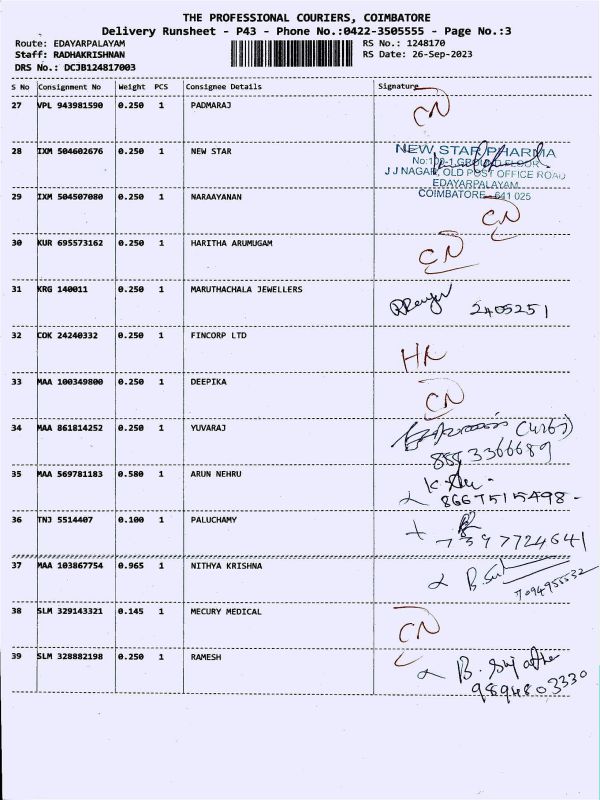 THE PROFESSIONAL COURIERS, COIMBATORE
Delivery Runsheet - P43 - Phone No.:0422-3505555 - Page No.:3
Route: EDAYARPALAYAM RS No.: 1248170
Staff: RADHAKRISHNAN RS Date: 26-Sep-2023
DRS No.: DCJB124817003
S No Consignment No Weight PCS Consignee Details Signature
27 VPL 943981590 0.250 1 PADMARAJ CN
28 IXM 504602676 0.250 1 NEW STAR NEW STAR PHARMA
No:109-1,GROUND FLOOR
J J NAGAR, OLD POST OFFICE ROAD
EDAYARPALAYAM
COIMBATORE - 641 025
29 IXM 504507080 0.250 1 NARAAYANAN CN
30 KUR 695573162 0.250 1 HARITHA ARUMUGAM CN
31 KRG 140011 0.250 1 MARUTHACHALA JEWELLERS 2405251
32 COK 24240332 0.250 1 FINCORP LTD
33 MAA 100349800 0.250 1 DEEPIKA CN
34 MAA 861814252 0.250 1 YUVARAJ
8883366689
35 MAA 569781183 0.580 1 ARUN NEHRU
8667515498
36 TNJ 5514407 0.100 1 PALUCHAMY
7597724641
37 MAA 103867754 0.965 1 NITHYA KRISHNA
7094955532
38 SLM 329143321 0.145 1 MECURY MEDICAL CN
39 SLM 328882198 0.250 1 RAMESH B. Sujatha
9894803330